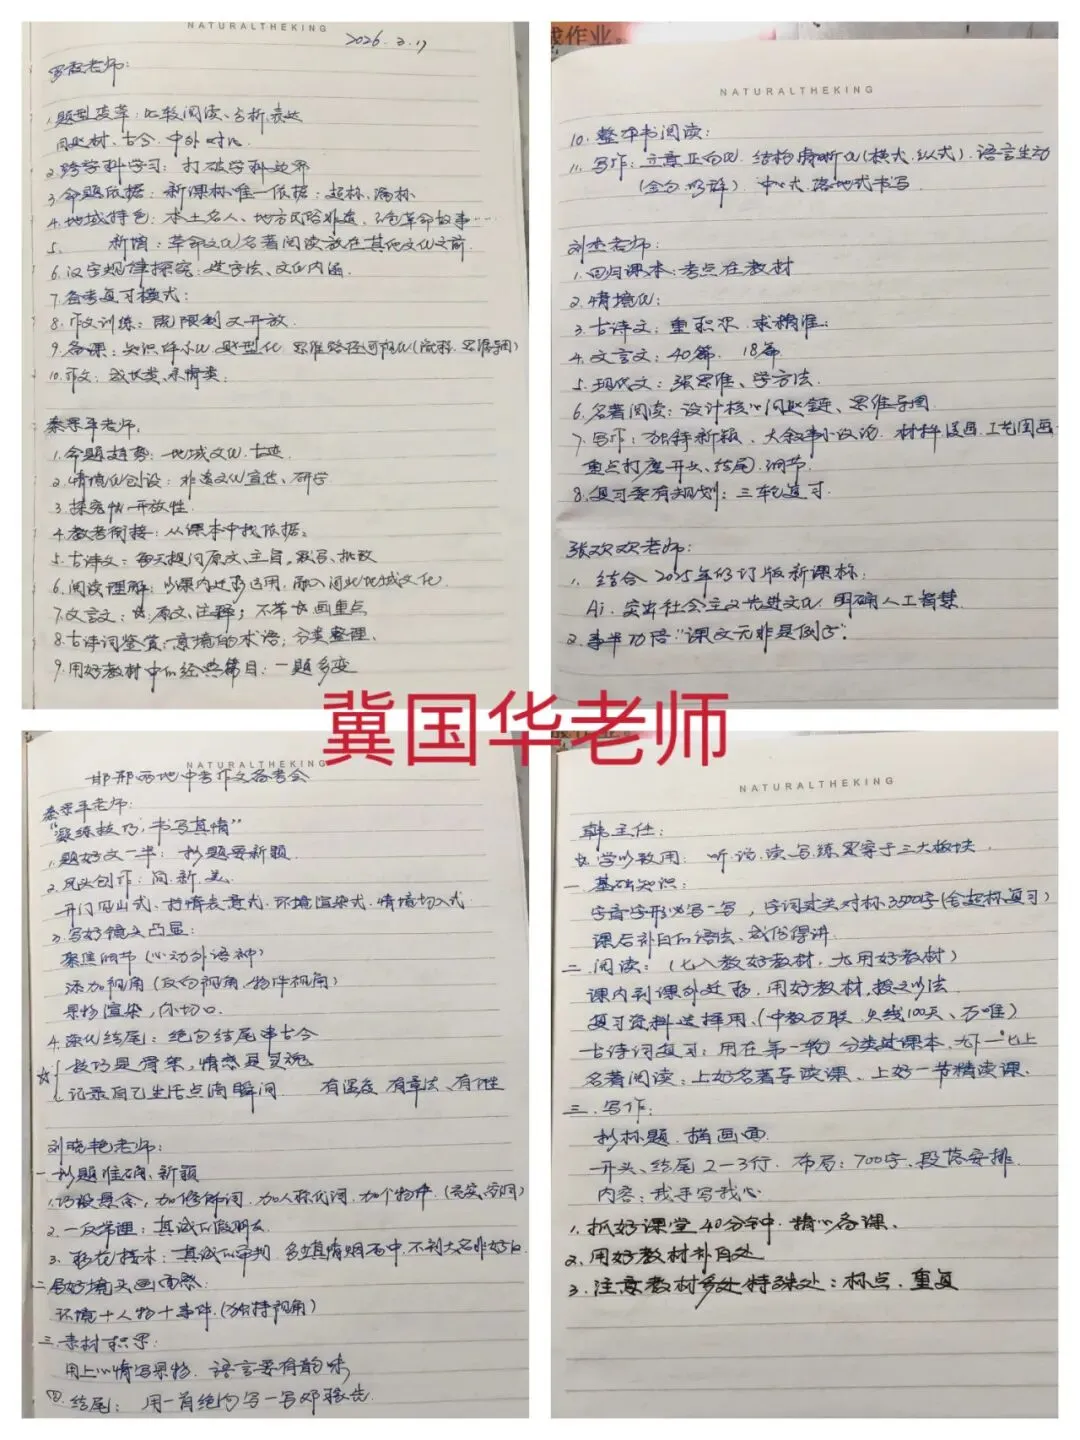 NATURALTHEKING
2026.3.17
老师:
1.题型变革:比较阅读、分析表达
同题材、古今、中外对比.
2.跨学科学习:打破学科边界
3.命题依据:新课标唯一依据:超标、漏标
4.地域特色:本土名人、地方民俗非遗、红色革命故事……
5. 新增:革命文化名著阅读放在其他文化之前.
6.汉字规律探究:造字法、文化内涵.
7.备考复习模式:
8.作文训练:既限制又开放.
9.备课:知识体系化、题型化、思维路径可视化(流程、思维导图)
10.作文:成长类、亲情类:
老师:
1.命题趋势:地域文化、古迹.
2.情境化创设:非遗文化宣传、研学
3.探究性开放性.
4.教考衔接:从课本中找依据.
5.古诗文:每天提问原文、主旨、默写、批改
6.阅读理解:以课内迁移运用,融入河北地域文化.
7.文言文:原文、注释;画重点
8.古诗词鉴赏:意境的术语;分类整理.
9.用好教材中的经典篇目:一题多变
业作。
NATURALTHEKING
10.整本书阅读:
11.写作:立意正向化、结构清晰化(横式、纵式)、语言生动
(金句、对辞) 落地式书写.
刘老师:
1.回归课本:考点在教材
2.情境化:
3.古诗文:重积累、求精准:
4.文言文:40篇、18篇.
5.现代文:强思维、学方法.
6.名著阅读:设计核心问题链、思维导图.
7.写作:独特新颖、大叙事小议论、材料漫画、工艺图画.
重点打磨开头、结尾、细节.
8.复习要有规划:三轮复习.
张欢欢老师:
1.结合2025年修订版新课标:
Ai. 突出社会主义先进文化、明确人工智慧.
2.事半功倍"课文无非是例子".
冀国华老师
NATURALTHEKING
邯邢两地中考作文备考会
老师:
"凝练技巧,书写真情"
1.题好文一半:拟题要新颖.
2.凤头创作:简、新、美.
开门见山式、抒情表意式、环境渲染式、情境切入式
3.写好镜头凸显:
聚焦细节(心动外语神)
添加视角(反向视角、物件视角)
景物渲染,小切口.
4.深化结尾:绝句结尾串古今
☆ 技巧是骨架,情感是灵魂
记录自己生活点滴瞬间 有温度、有章法、有个性
刘晓艳老师:
一 拟题准确、新颖
1.巧设悬念,加修饰词、加人称代词、加个物件.
2.一反常理:真诚的假朋友
3.移花接木:
二 写好镜头画面感:
环境+人物+事件.(独特视角)
三.素材积累:
用上心情写景物、语言要有韵味
结尾:用一首绝句写一写
NATURALTHEKING
韩主任:
文.学以致用:听、说、读、写、练贯穿于三大板块.
一.基础知识:
字音字形必写一写,字词过关对标3500字(含超标复习)
课后补白的语法、成份得讲.
二.阅读:(七八教好教材、九用好教材)
课内到课外迁移,用好教材,授之以法
复习资料选择用.(中教万联、火线100天、万唯)
古诗词复习:用在第一轮,分类过课本,九下→七上
名著阅读:上好名著导读课、上好一节精读课.
三.写作:
拟标题、描画面.
开头、结尾2—3行.布局:700字、段落安排.
内容:我手写我心
1.抓好课堂40分钟中.精心备课.
2.用好教材补白处
3.注意教材多处特殊处:标点、重复